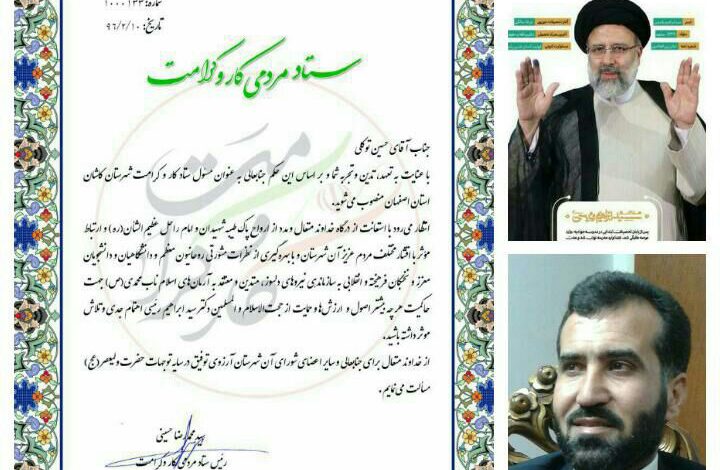 شماره: ۱۰۰۰۱۳۳
تاریخ: ۹۶/۲/۱۰
ستاد مردمی کار و کرامت
جناب آقای حسین توکلی
با عنایت به تعهد، تدین و تجربه شما و بر اساس این حکم جنابعالی به عنوان مسئول ستاد کار و کرامت شهرستان کاشان
استان اصفهان منصوب می‌شوید.
انتظار می‌رود با استعانت از درگاه خداوند متعال و مدد از ارواح پاک طیبه شهیدان و امام راحل عظیم الشان (ره) و ارتباط
مؤثر با اقشار مختلف مردم عزیز آن شهرستان و با بهره‌گیری از نظرات مشورتی روحانیون معظم و دانشگاهیان و دانشجویان
معزز و نخبگان فرهیخته و انقلابی به سازماندهی نیروهای دلسوز، متدین و معتقد به آرمان‌های اسلام ناب محمدی (ص) جهت
حاکمیت هر چه بیشتر اصول و ارزش‌ها و حمایت از حجت الاسلام و المسلمین دکتر سید ابراهیم رئیسی اهتمام جدی و تلاش
موثر داشته باشید.
از خداوند متعال برای جنابعالی و سایر اعضای شورای آن شهرستان آرزوی توفیق در سایه توجهات حضرت ولیعصر (عج)
مسألت می نمایم.
سید محمد رضا حسینی
رئیس ستاد مردمی کار و کرامت